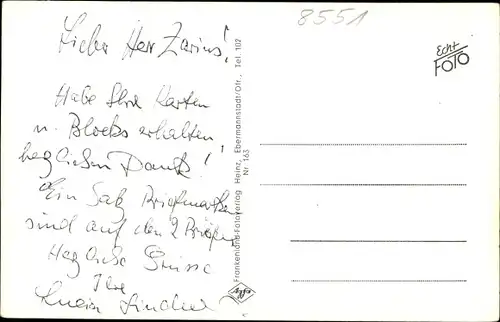 8551
Lieber Herr Zarius!
Habe Ihre Karten
u. Blocks erhalten,
herzlichen Dank!
Ein Satz Briefmarken
sind auf den 2 Briefen
Herzliche Grüsse
Ihre
Echt
FOTO
Frankenland-Fotoverlag Heinz, Ebermannstadt/Ofr., Tel. 102
Nr. 163
Agfa